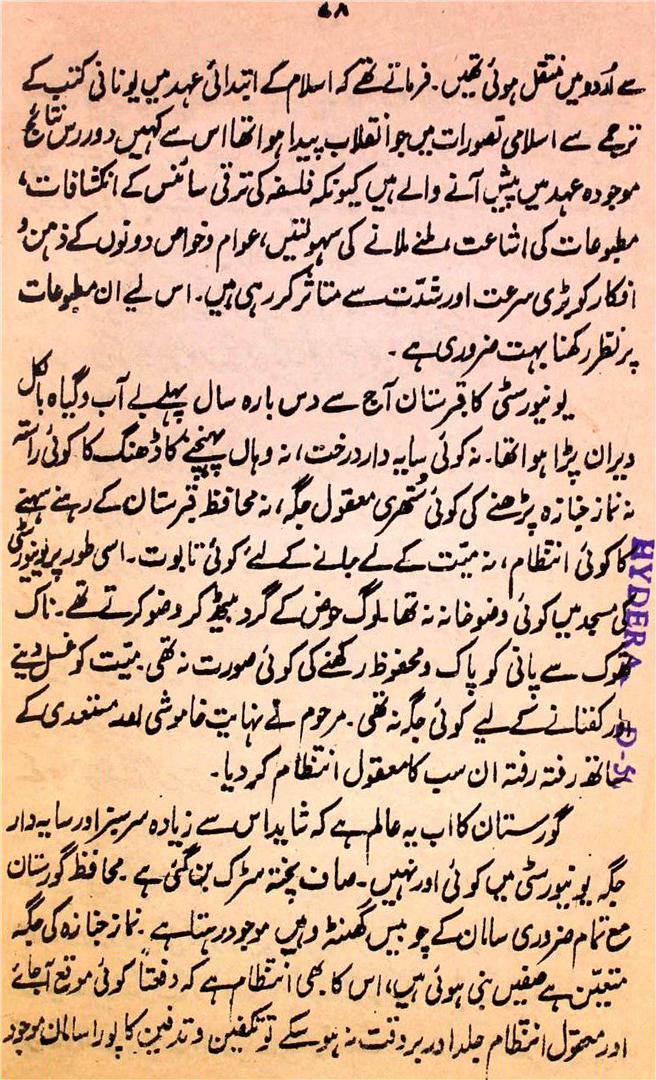 ۴۸
سے اُردو میں منتقل ہوئی تھیں۔ فرماتے تھے کہ اسلام کے ابتدائی عہد میں یونانی کتب کے
ترجمے سے اسلامی تصورات میں جو انقلاب پیدا ہوا تھا اس سے کہیں دور رس نتائج
موجودہ عہد میں پیش آنے والے ہیں کیونکہ فلسفہ کی ترقی سائنس کے انکشافات،
مطبوعات کی اشاعت ملنے ملانے کی سہولتیں، عوام و خواص دونوں کے ذہن و
افکار کو بڑی سرعت اور شدّت سے متاثر کر رہی ہیں۔ اس لیے ان مطبوعات
پر نظر رکھنا بہت ضروری ہے۔
یونیورسٹی کا قبرستان آج سے دس بارہ سال پہلے بے آب و گیاہ بالکل
ویران پڑا ہوا تھا۔ نہ کوئی سایہ دار درخت، نہ وہاں پہنچنے کا ڈھنگ کا کوئی راستہ
نہ نماز جنازہ پڑھنے کی کوئی سُتھری معقول جگہ، نہ محافظ قبرستان کے رہنے سہنے
کا کوئی انتظام، نہ میّت کے لے جانے کے لئے کوئی تابوت۔ اسی طور پر یونیورسٹی
کی مسجد میں کوئی وضو خانہ نہ تھا۔ لوگ حوض کے گرد بیٹھ کر وضو کرتے تھے۔ ناک
تھوک سے پانی کو پاک و محفوظ رکھنے کی کوئی صورت نہ تھی۔ میّت کو غسل دینے
اور کفنانے کے لیے کوئی جگہ نہ تھی۔ مرحوم نے نہایت خاموشی اور مستعدی کے
ساتھ رفتہ رفتہ ان سب کا معقول انتظام کر دیا۔
گورستان کا اب یہ عالم ہے کہ شاید اس سے زیادہ سرسبز اور سایہ دار
جگہ یونیورسٹی میں کوئی اور نہیں۔ صاف پختہ سڑک بن گئی ہے۔ محافظ گورستان
مع تمام ضروری سامان کے چوبیس گھنٹہ وہیں موجود رہتا ہے۔ نماز جنازہ کی جگہ
متعیّن ہے صفیں بنی ہوئی ہیں، اس کا بھی انتظام ہے کہ دفعتاً کوئی موقع آجائے
اور معمول انتظام جلد اور بر وقت نہ ہو سکے تو تکفین و تدفین کا پورا سامان موجود
HYDERA D-5